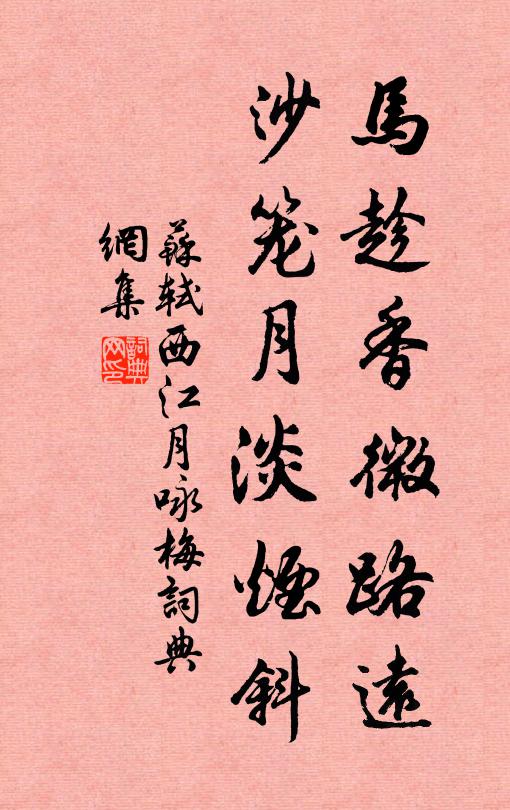 馬趁香微路遠
沙笼月淡煙斜
蘇軾西江月咏梅詞典
網集
詞典网印